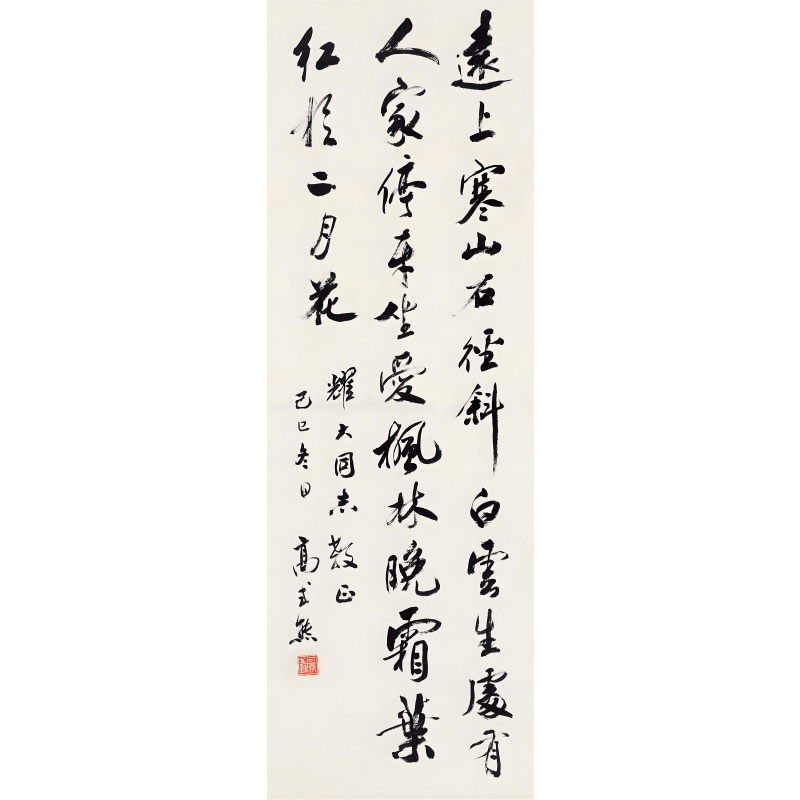 遠上寒山石徑斜白雲生處有
人家停車坐愛楓林晚霜葉
紅於二月花
耀大同志教正
己巳冬日 高式熊